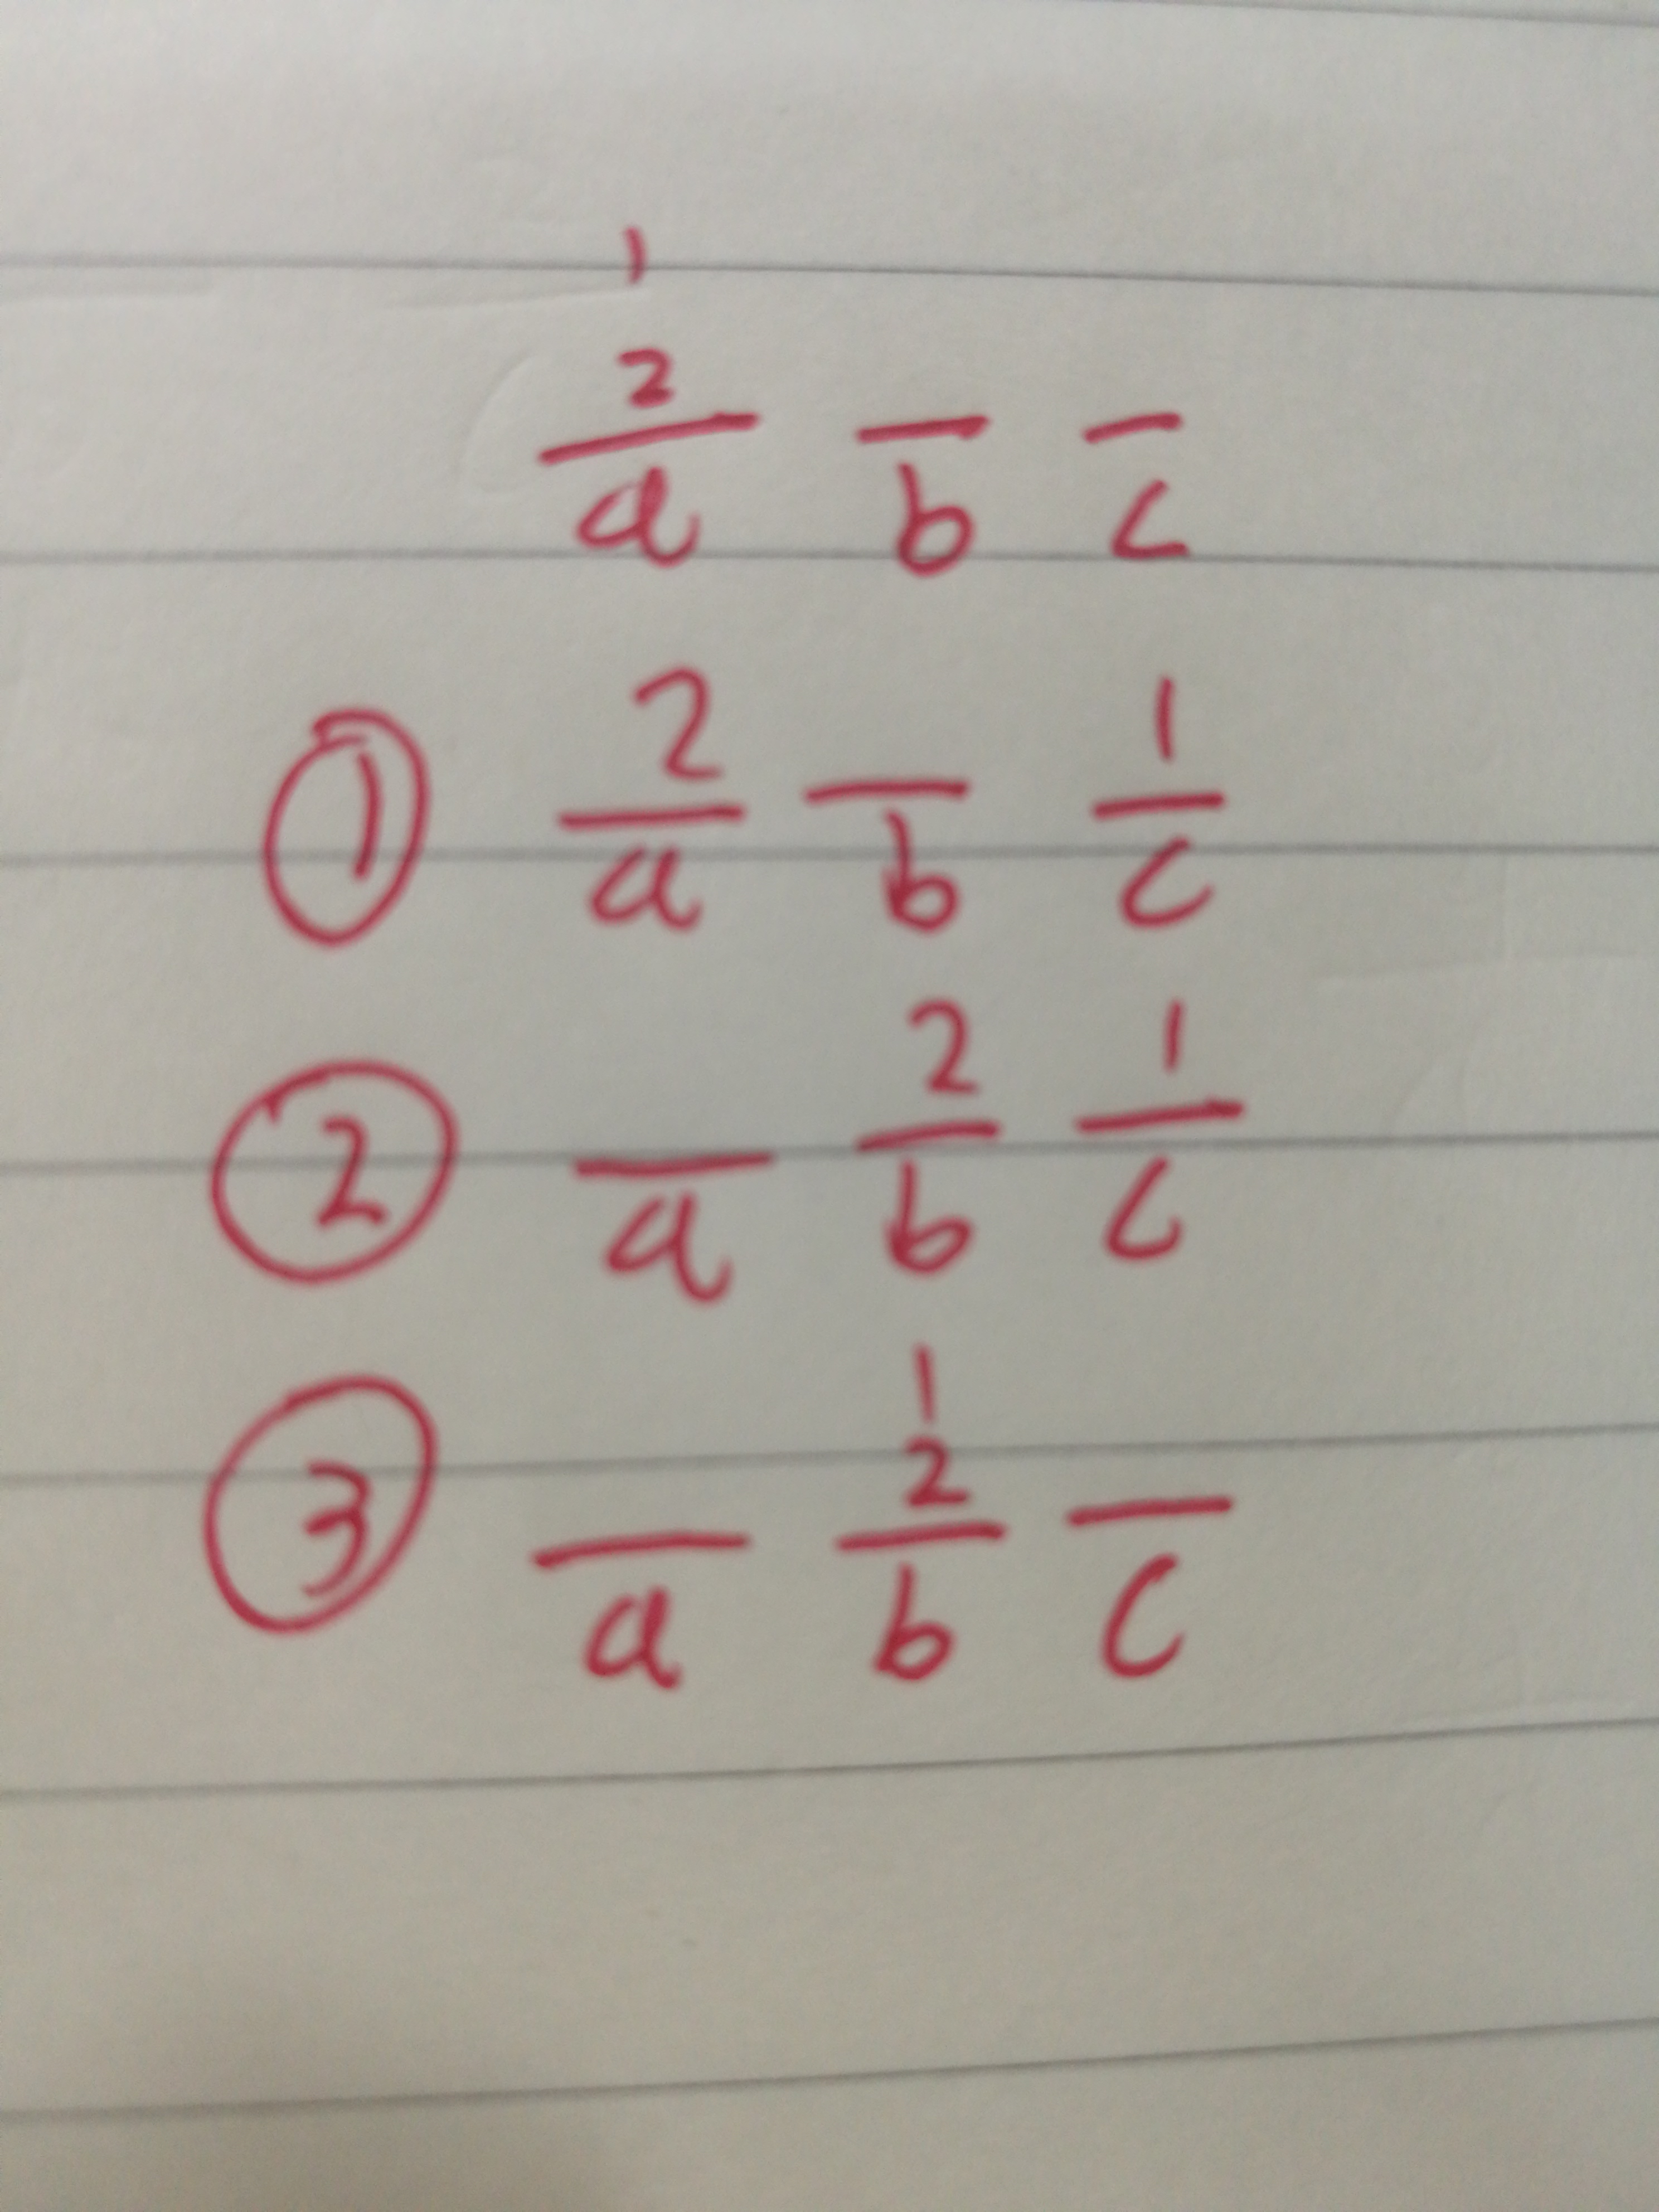 1
2
a b c
① 2 1
a b c
② 2 1
a b c
1
③ 2
a b c